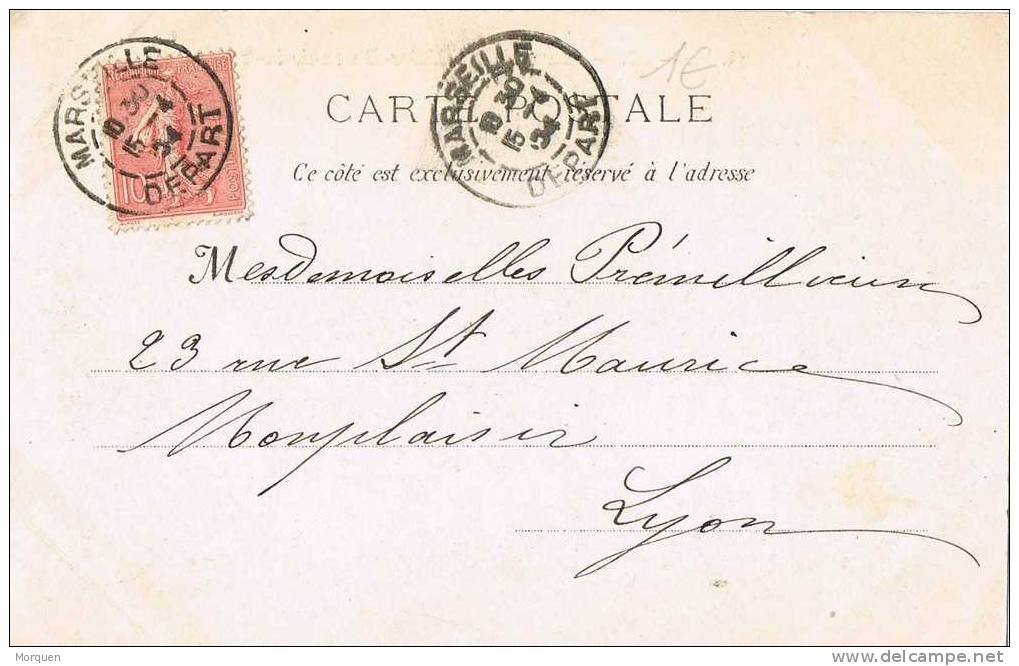 1€
MARSEILLE
18 30
15 -4
04
DEPART
MARSEILLE
18 30
15 -4
04
DEPART
REPUBLIQUE FRANÇAISE
10
POSTES
CARTE POSTALE
Ce côté est exclusivement réservé à l'adresse
Mesdemoiselles Prémillieux
23 rue St Maurice
Monplaisir
Lyon
Morquen
www.delcampe.net